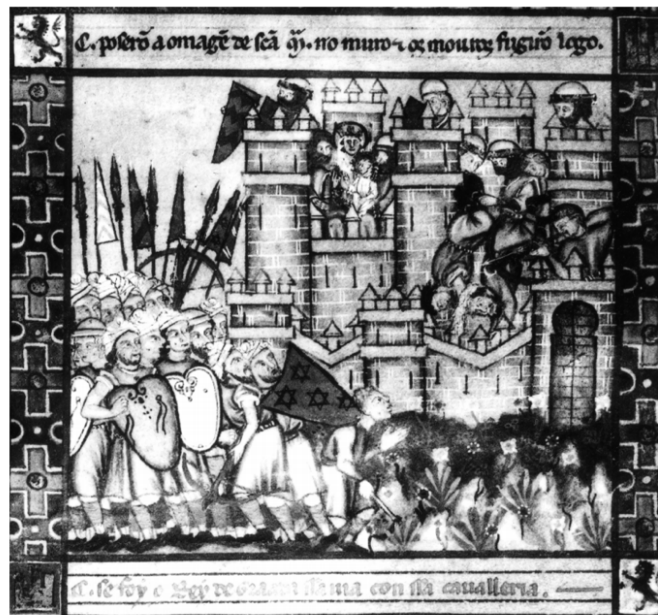 C. poserõ a omagẽ de scã m̃. no muro ⁊ os mouros fugirõ logo.
C. se foy o Rey de con ssa cavalleria.